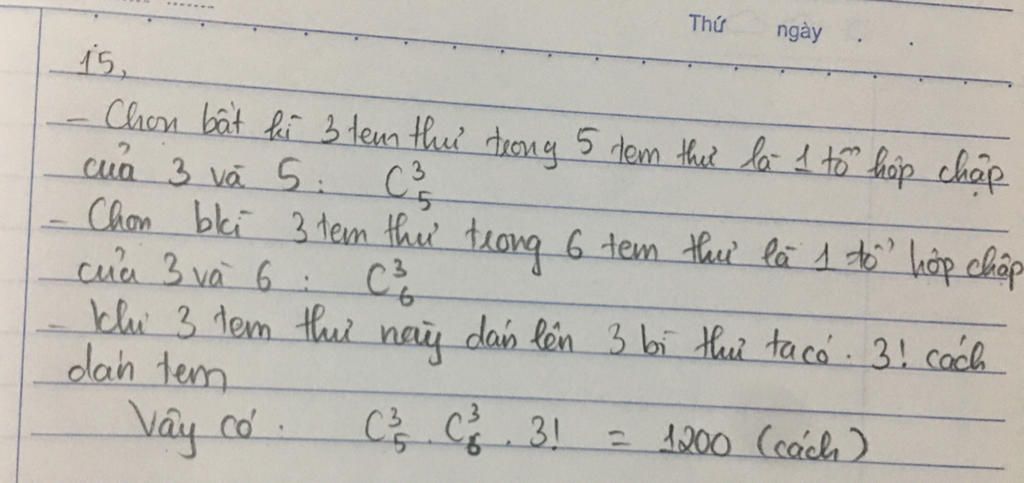 Thứ ngày . .
15,
- Chọn bất kì 3 tem thư trong 5 tem thư là 1 tổ hợp chập
của 3 và 5 : C³₅
- Chọn bkì 3 tem thư trong 6 tem thư là 1 tổ hợp chập
của 3 và 6 : C³₆
- Khi 3 tem thư này dán lên 3 bì thư ta có . 3! cách
dán tem
Vậy có . C³₅ . C³₆ . 3! = 1200 (cách)